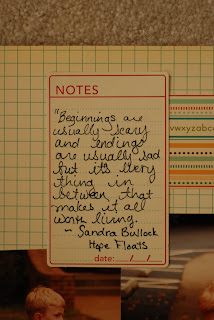 NOTES
"Beginnings are
usually scary
and endings
are usually sad
but it's every
thing in
between that
makes it all
worth living.
~ Sandra Bullock
Hope Floats
date: / /
vwxyzabc